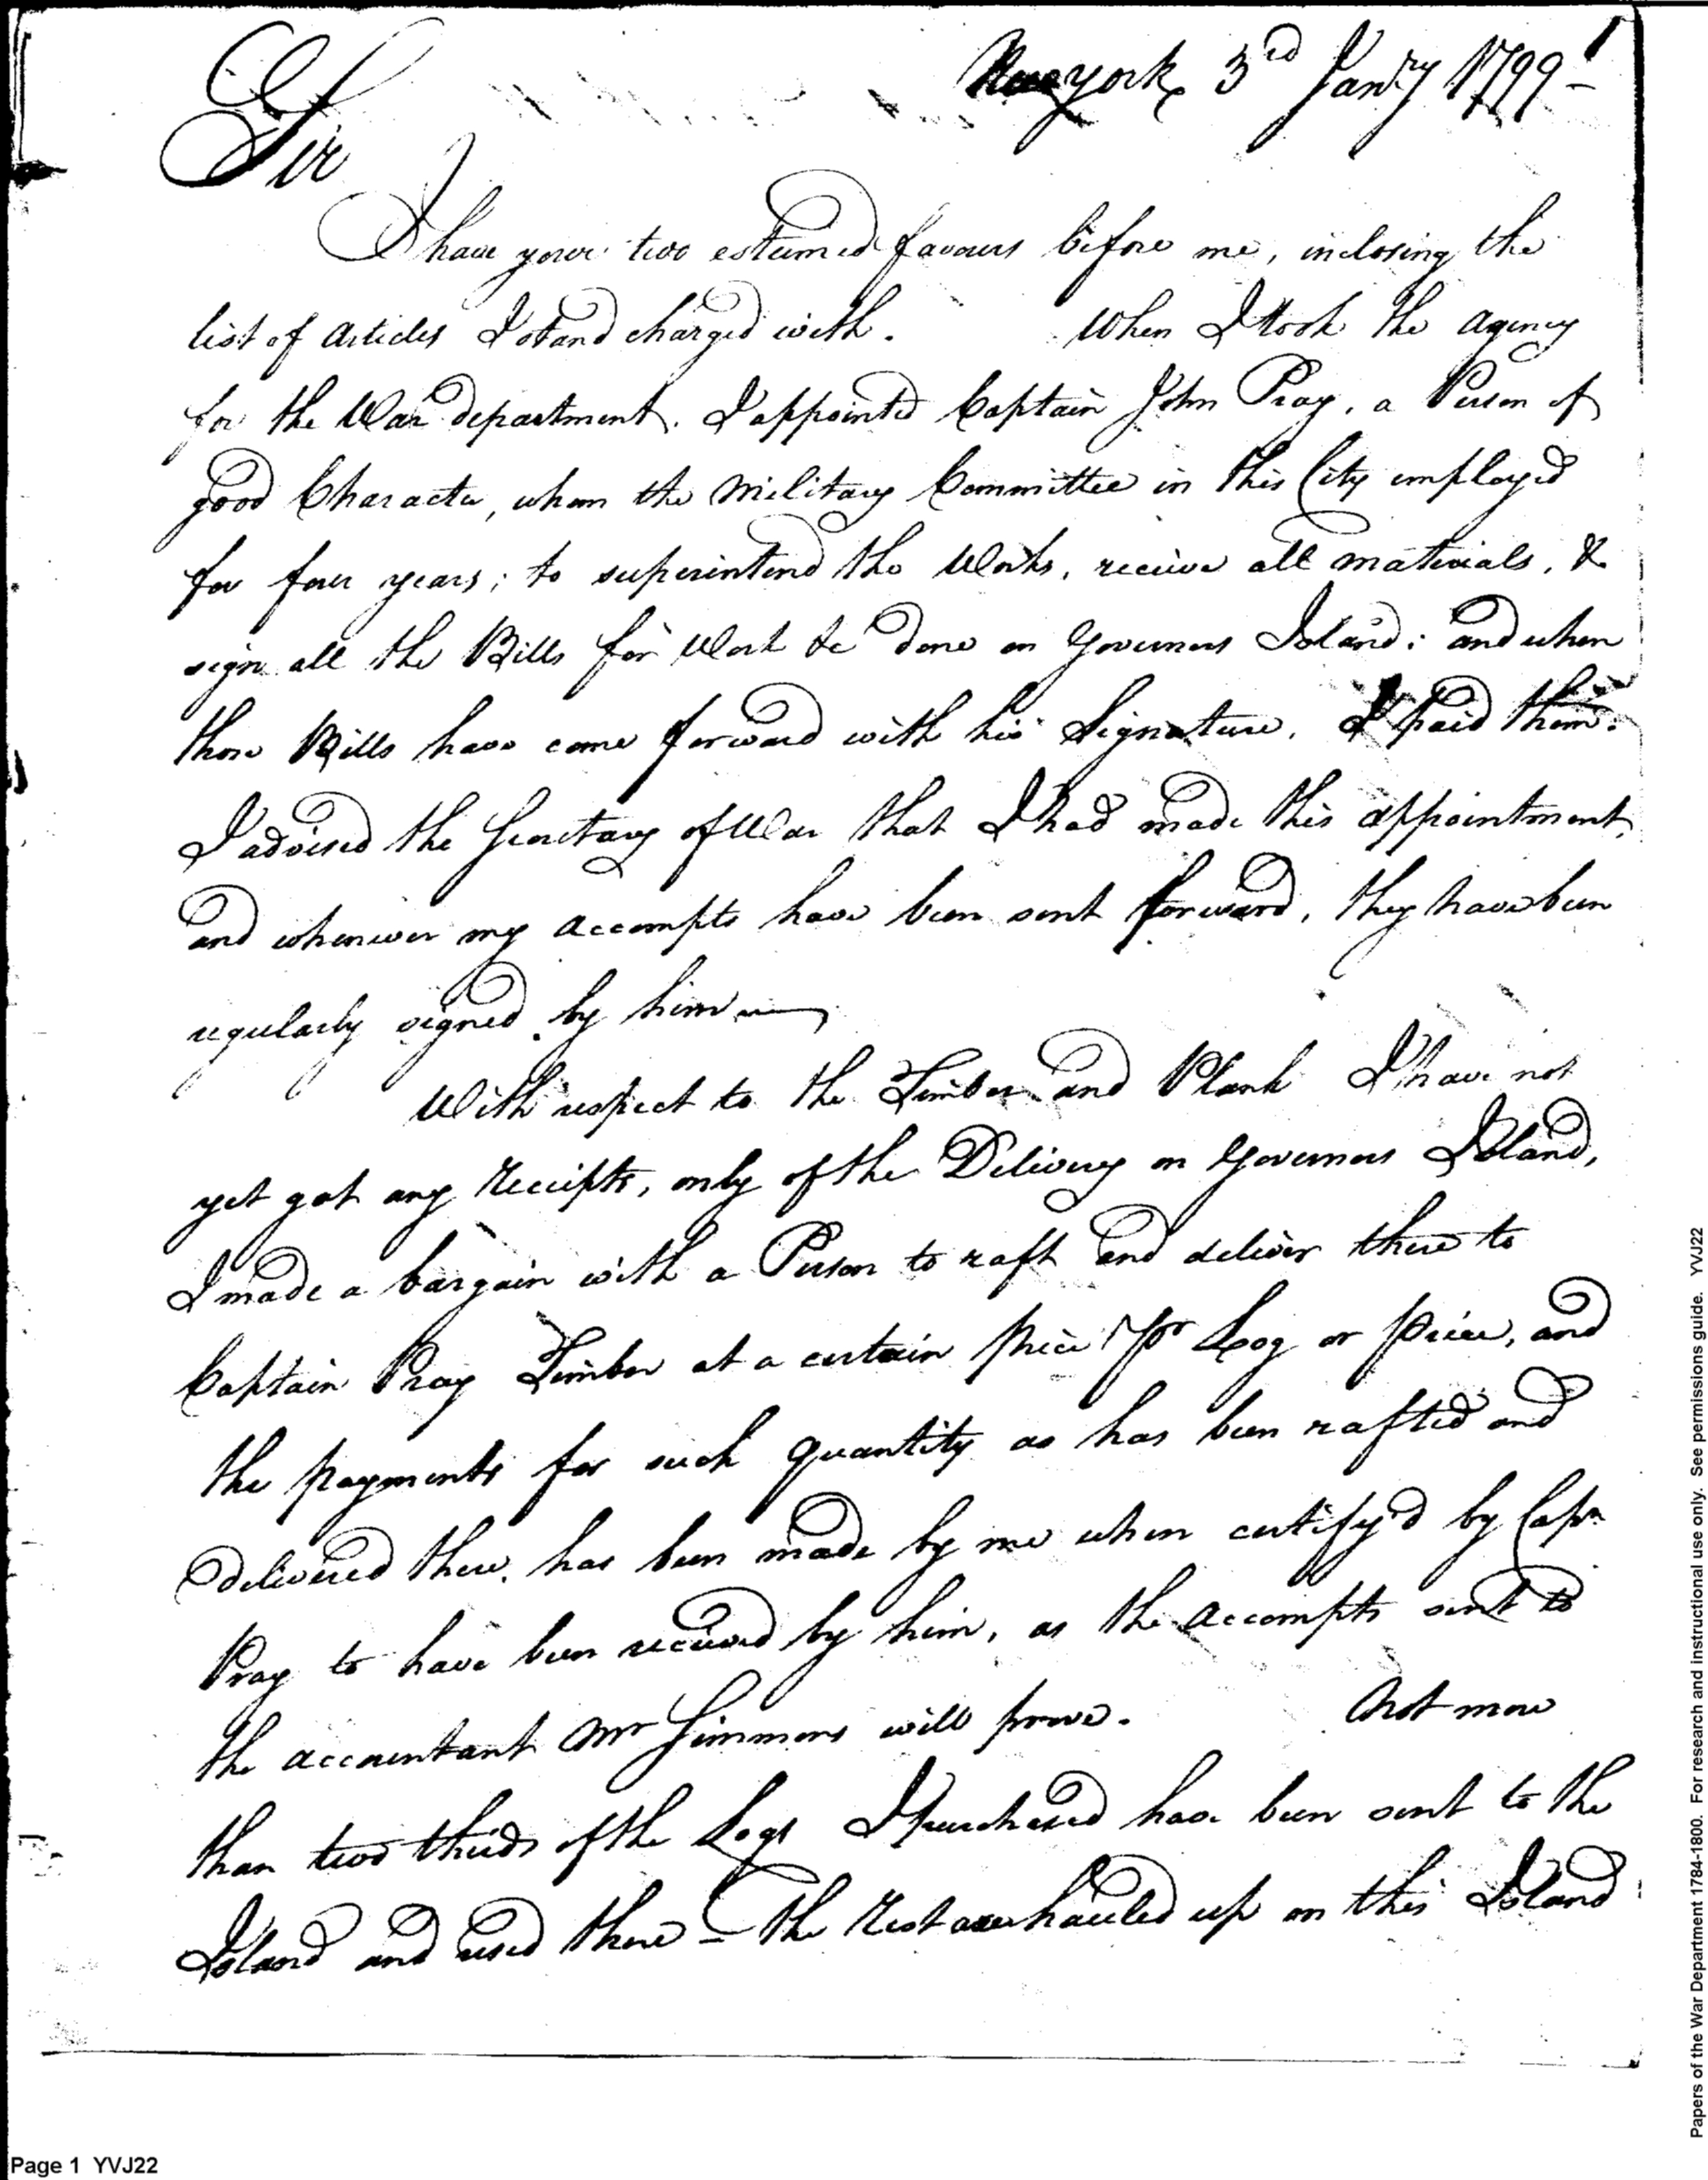 New york 3rd Janry 1799 -
Sir
I have your two esteemed favours before me, inclosing the
list of Articles I stand charged with. When I took the Agency
for the War department. I appointed Captain John Pray, a Person of
good Character, whom the Military Committee in this City employed
for four years; to superintend the Works, receive all materials, &
sign all the Bills for Work &c done on Governors Island: and when
those Bills have come forward with his Signature, I paid them.
I advised the Secretary of War that I had made this appointment,
and whenever my accompts have been sent forward, they have been
regularly signed by him
With respect to the Timber and Plank I have not
yet got any receipts, only of the Delivery on Governors Island,
I made a bargain with a Person to raft and deliver there to
Captain Pray Timber at a certain price pr Log or piece, and
the payments for such quantity as has been rafted and
delivered there, has been made by me when certify'd by Capn
Pray to have been received by him, as the accompts sent to
the accountant Mr Simmons will prove. Not more
than two thirds of the Logs I purchased have been sent to the
Island and used there - the rest are hauled up on this Island
Page 1 YVJ22
Papers of the War Department 1784-1800. For research and instructional use only. See permissions guide. YVJ22